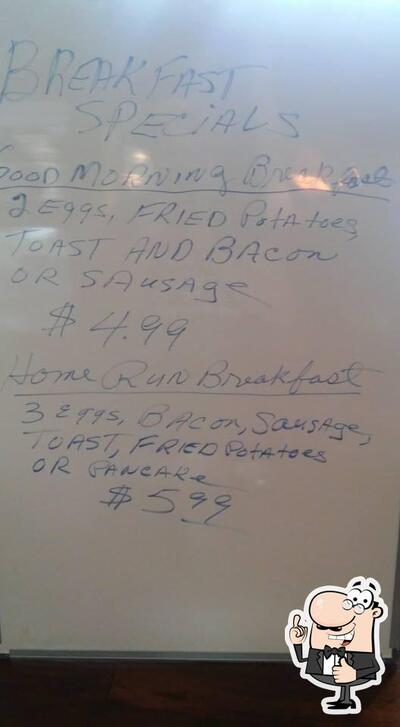 BREAKFAST
SPECIALS
GOOD MORNING Breakfast
2 Eggs, FRIED Potatoes,
TOAST AND BACON
OR SAusage
$ 4.99
Home Run Breakfast
3 Eggs, BACON, Sausage,
TOAST, FRIED Potatoes
OR PANCAKe
$ 5.99